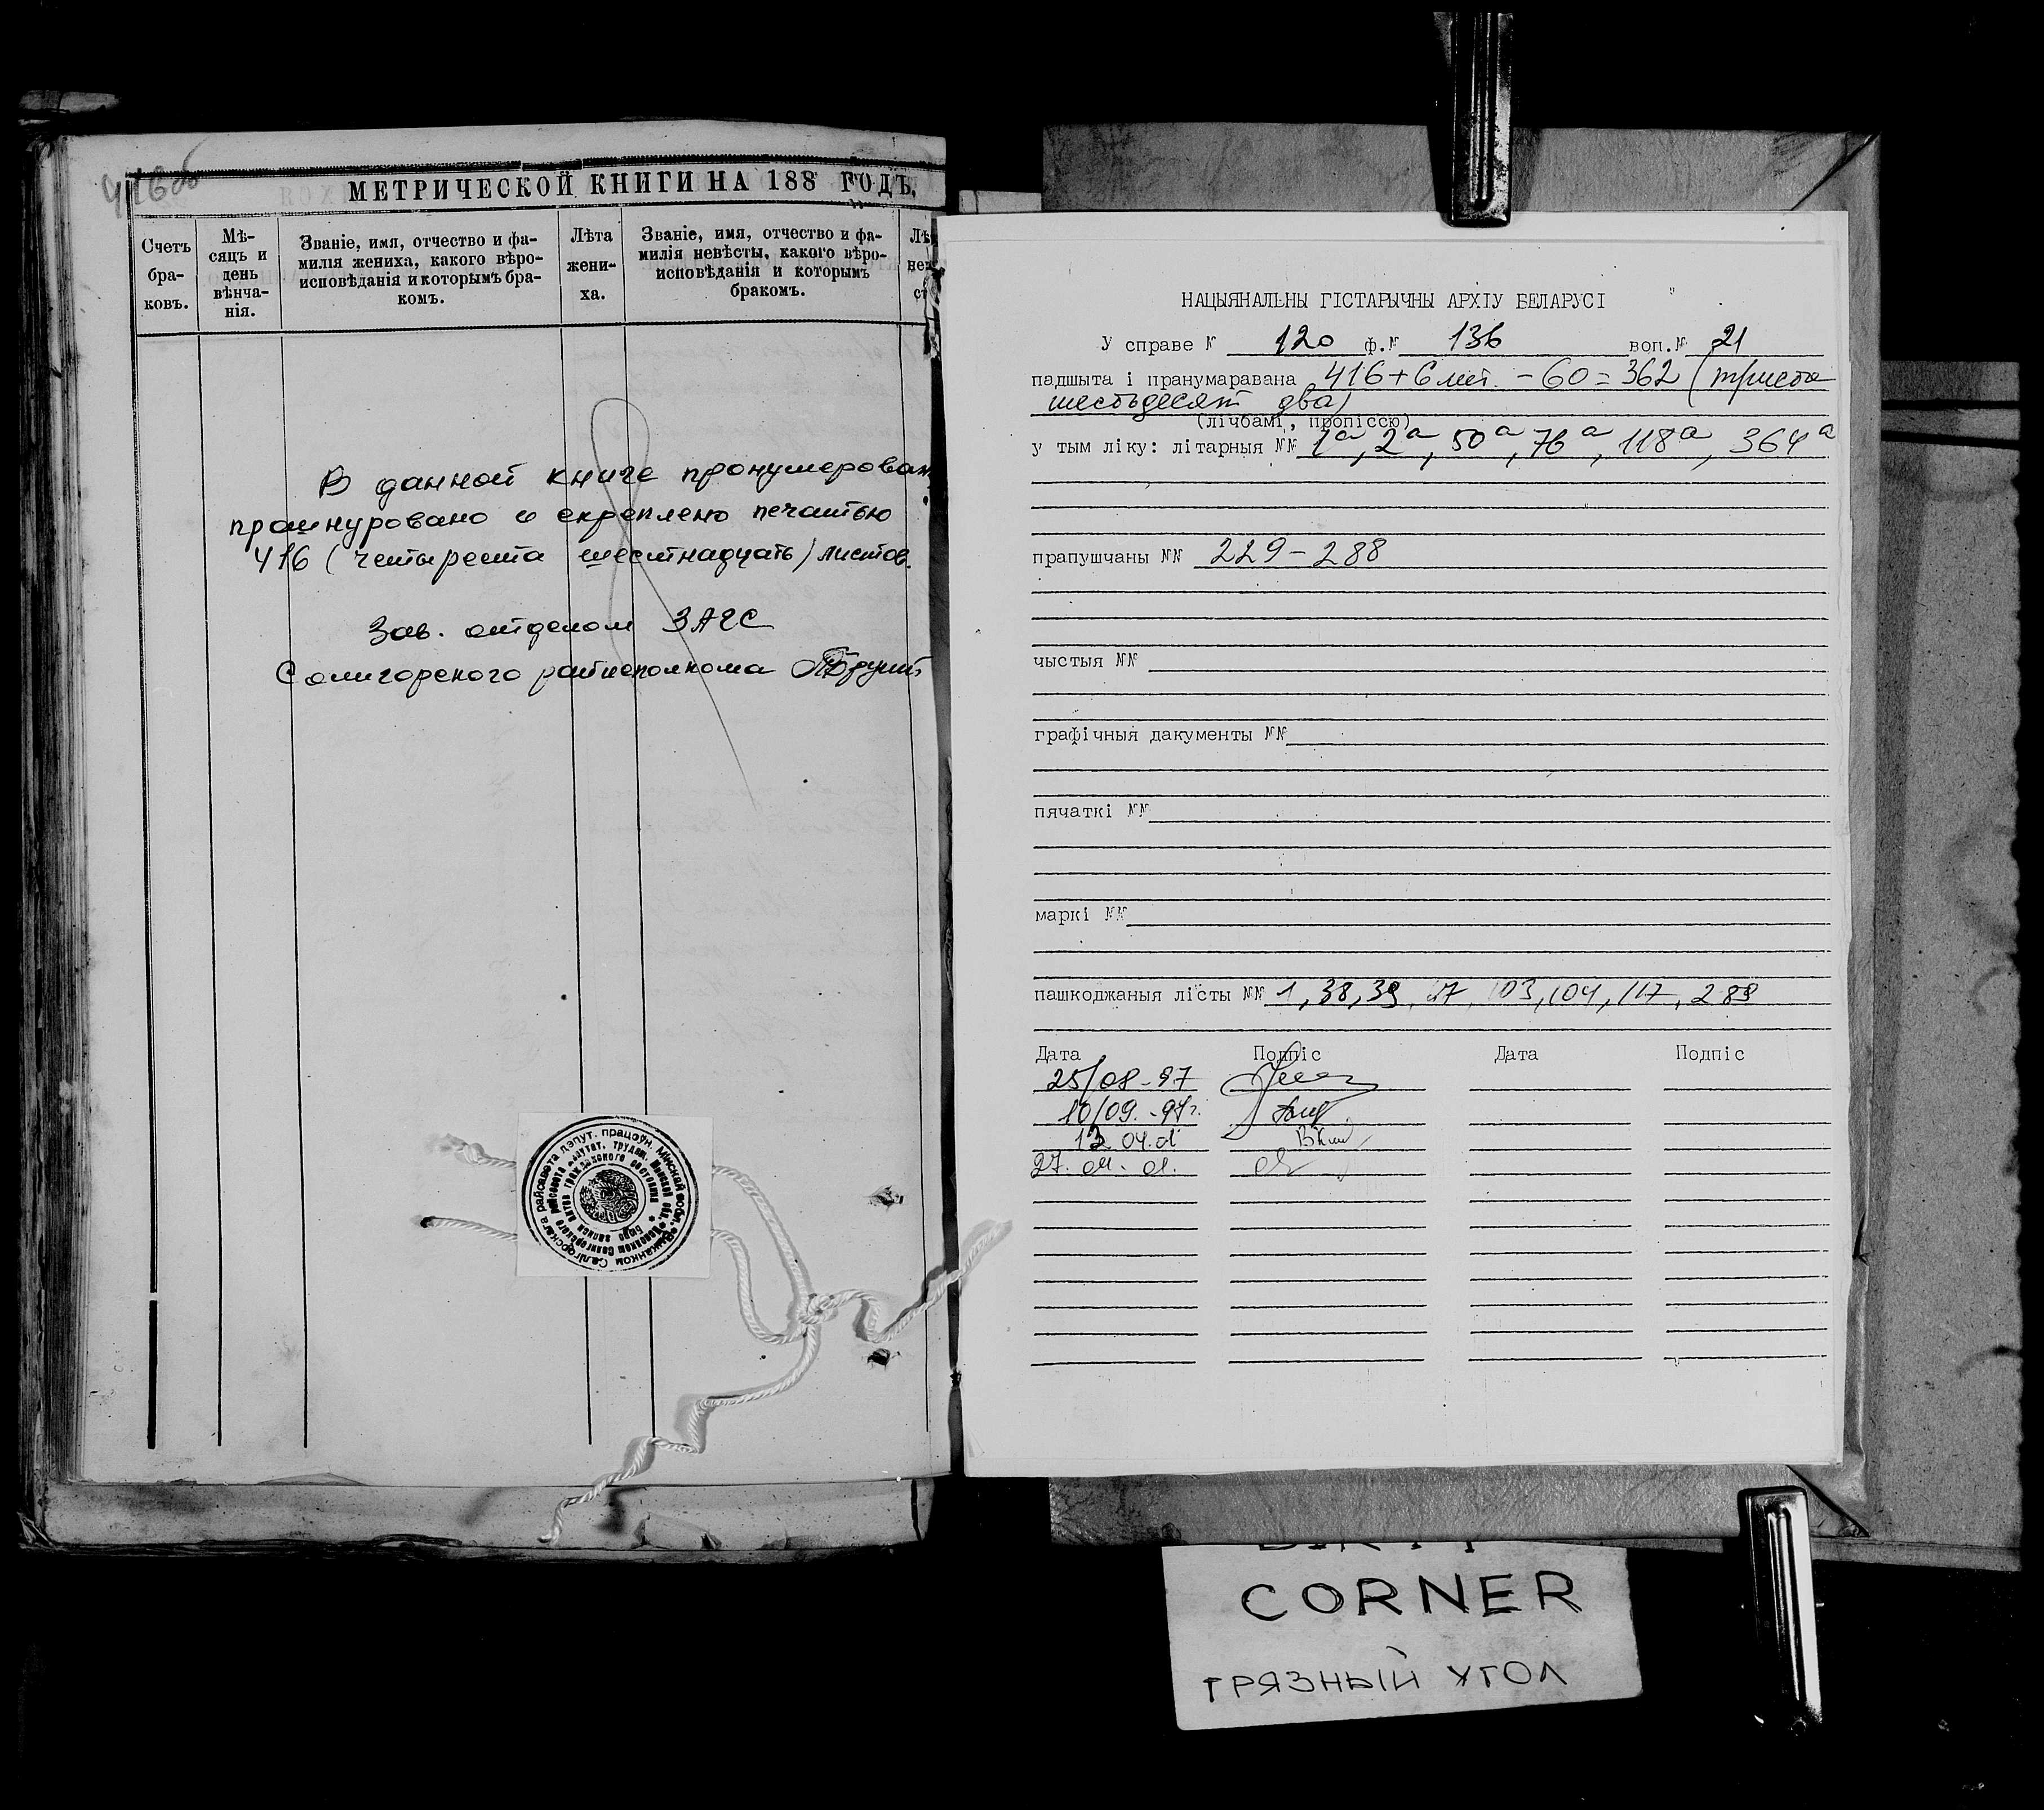 416 об
МЕТРИЧЕСКОЙ КНИГИ НА 188 ГОДЪ,
Счетъ бра-ковъ.
Мѣ-сяцъ и день вѣнча-нія.
Званіе, имя, отчество и фа-милія жениха, какого вѣро-исповѣданія и которымъ бра-комъ.
Лѣта жени-ха.
Званіе, имя, отчество и фа-милія невѣсты, какого вѣро-исповѣданія и которымъ бракомъ.
В данной книге пронумерован
прошнуровано и скреплено печатью
416 (четыреста шестнадцать) листов.
Зав. отделом ЗАГС
Солигорского райисполкома
НАЦЫЯНАЛЬНЫ ГІСТАРЫЧНЫ АРХІУ БЕЛАРУСІ
У справе № 120 ф.№ 136 воп.№ 21
падшыта і пранумаравана 416+6 лит. - 60 = 362 (триста
шестьдесят два)
(лічбамі, пропіссю)
у тым ліку: літарныя №№ 1а, 2а, 50а, 76а, 118а, 364а
прапушчаны №№ 229-288
чыстыя №№
графічныя дакументы №№
пячаткі №№
маркі №№
пашкоджаныя лісты №№ 1, 38, 39, 103, 104, 117, 289
Дата Подпіс Дата Подпіс
25/08-97
10/09.-97г.
13 04.01
27. 04. 01.
CORNER
ГРЯЗНЫЙ УГОЛ